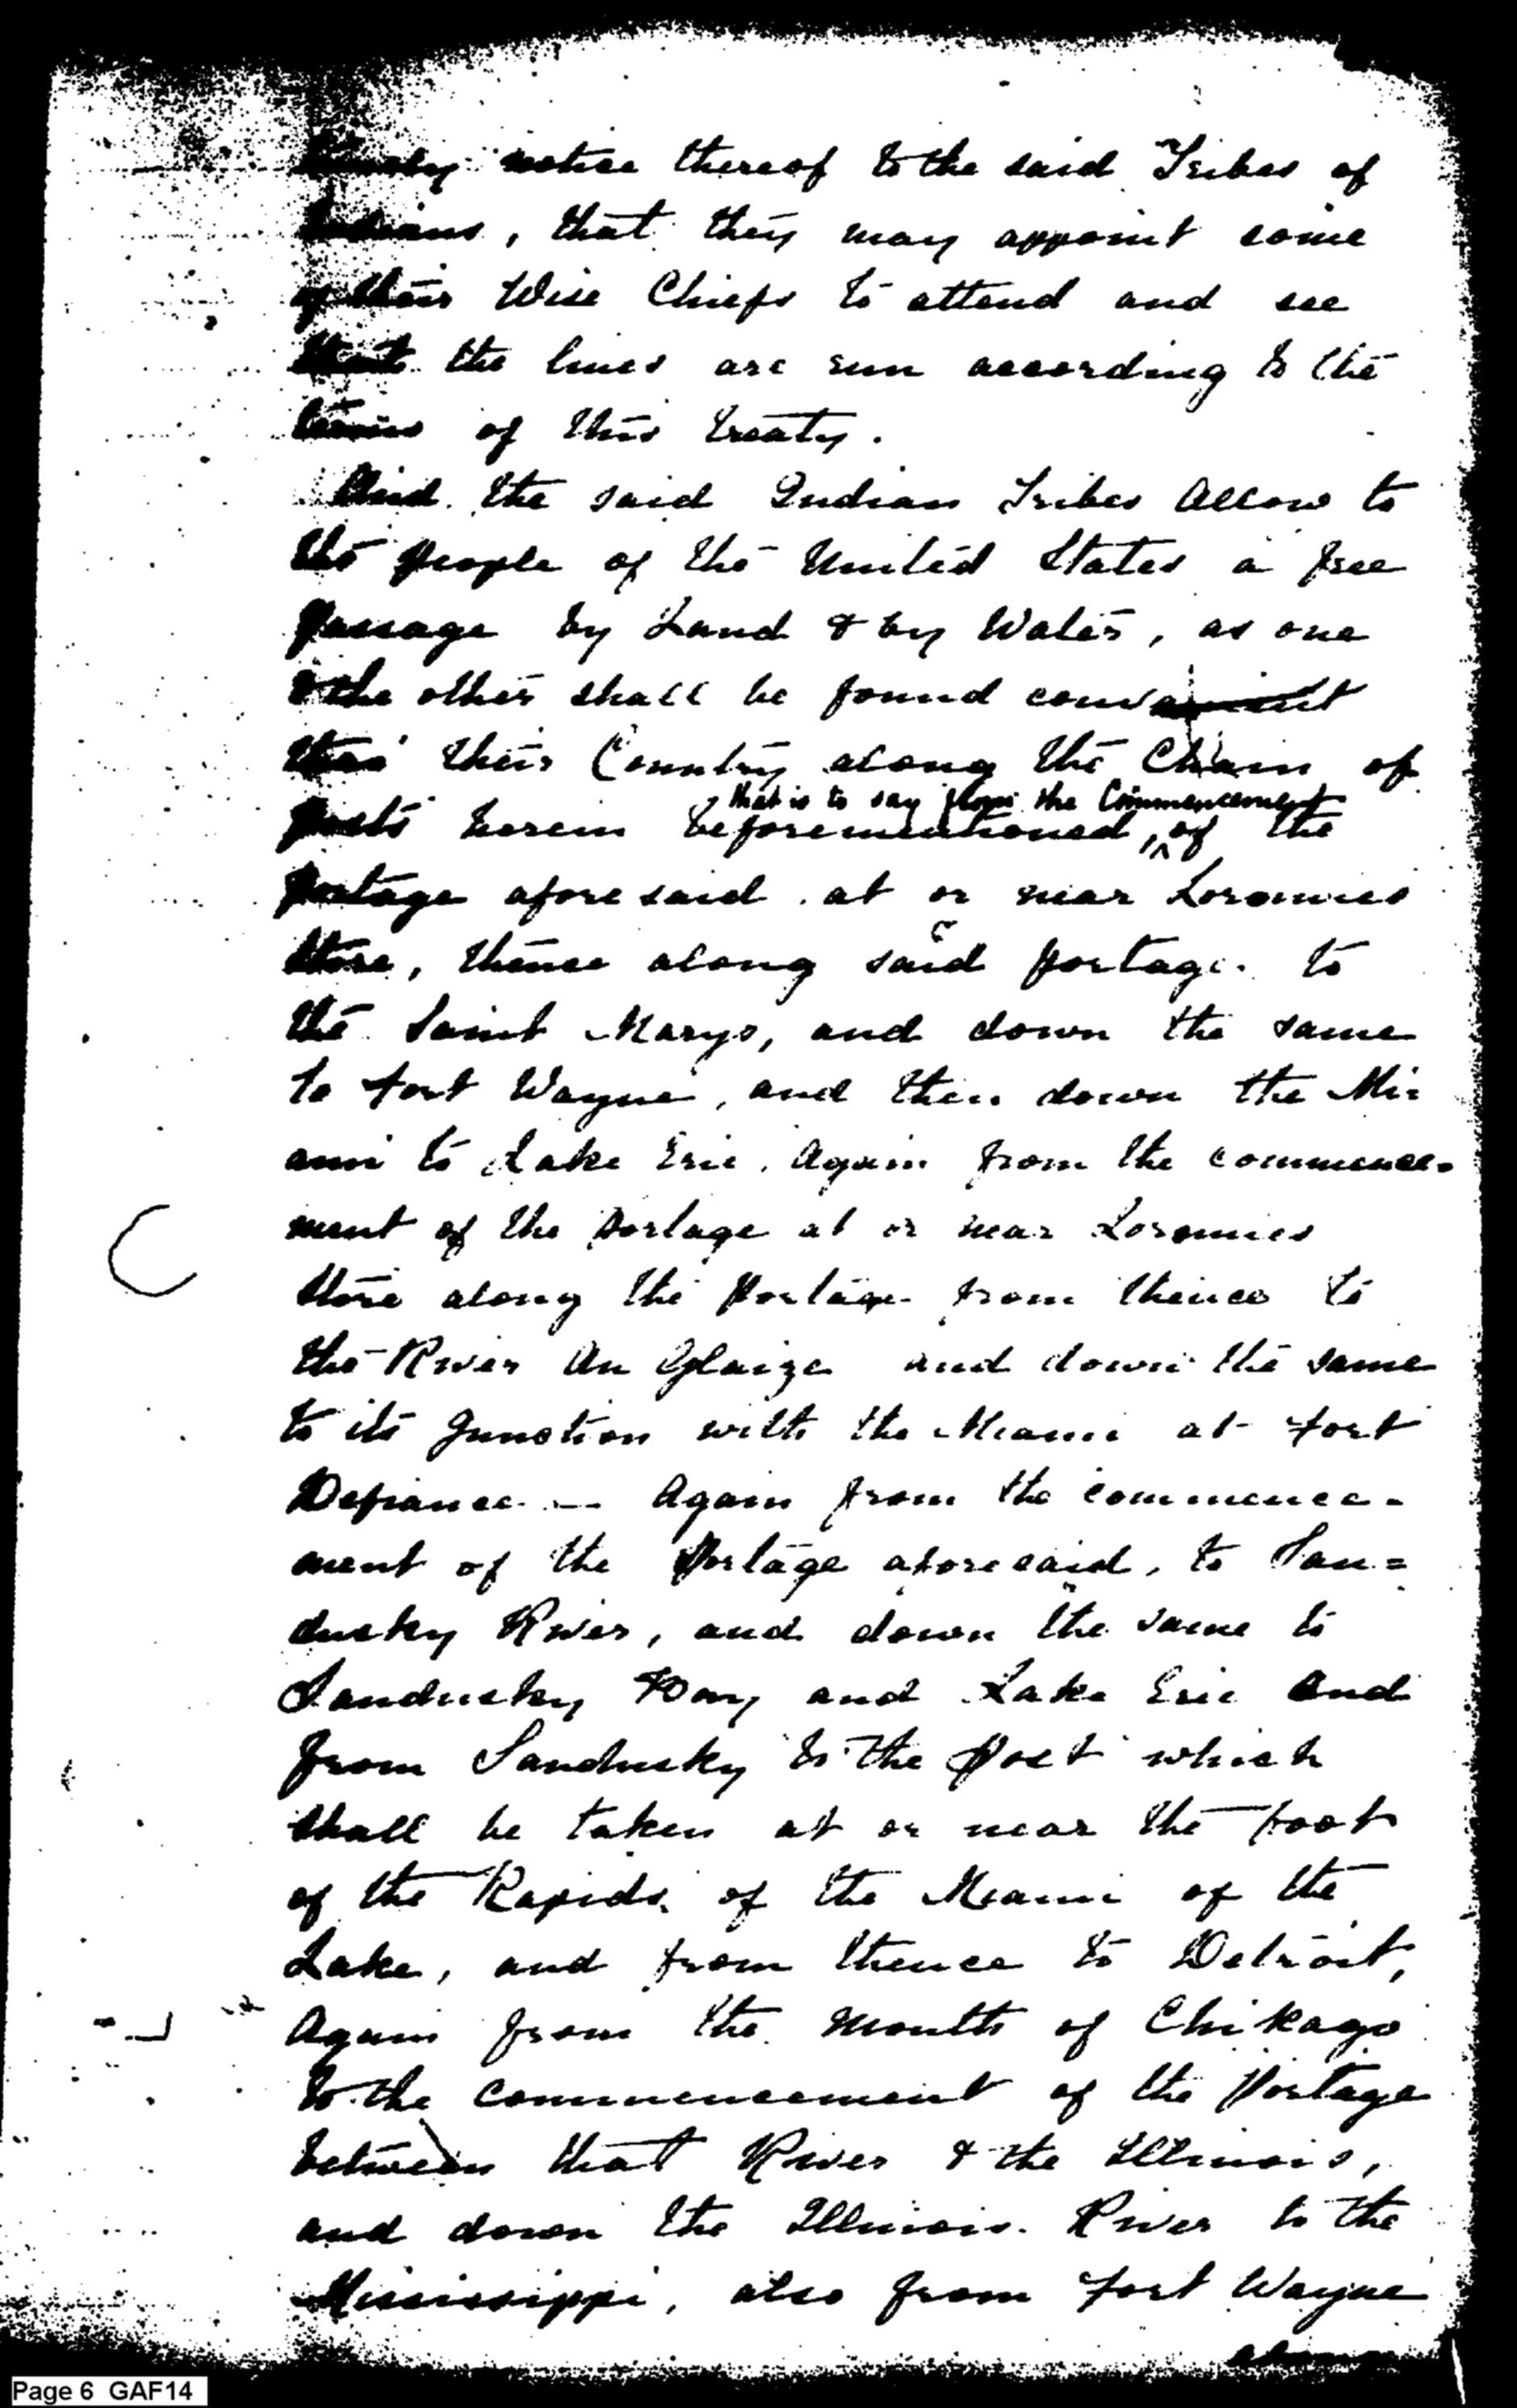 timely notice thereof to the said Tribes of
Indians, that they may appoint some
of their Wise Chiefs to attend and see
that the lines are run according to the
terms of this treaty.
And the said Indian Tribes Allow to
the people of the United States a free
passage by Land & by Water, as one
& the other shall be found convenient
thro' their Country along the Chain of
that is to say from the Commencement
posts herein beforementioned, ^ of the
portage aforesaid at or near Loromies
Store, thence along said portage to
the Saint Marys, and down the same
to Fort Wayne, and then down the Mi-
ami to Lake Erie. Again from the commence-
ment of the portage at or near Loromies
Store along the Portage from thence to
the River Au Glaize and down the same
to its Junction with the Miami at Fort
Defiance — Again from the commence-
ment of the Portage aforesaid, to San=
dusky River, and down the same to
Sandusky Bay and Lake Erie and
from Sandusky to the Post which
shall be taken at or near the foot
of the Rapids of the Miami of the
Lake, and from thence to Detroit,
Again from the mouth of Chikago
to the commencement of the Portage
between that River & the Illinois,
and down the Illinois River to the
Mississippi, also from Fort Wayne
along
Page 6 GAF14